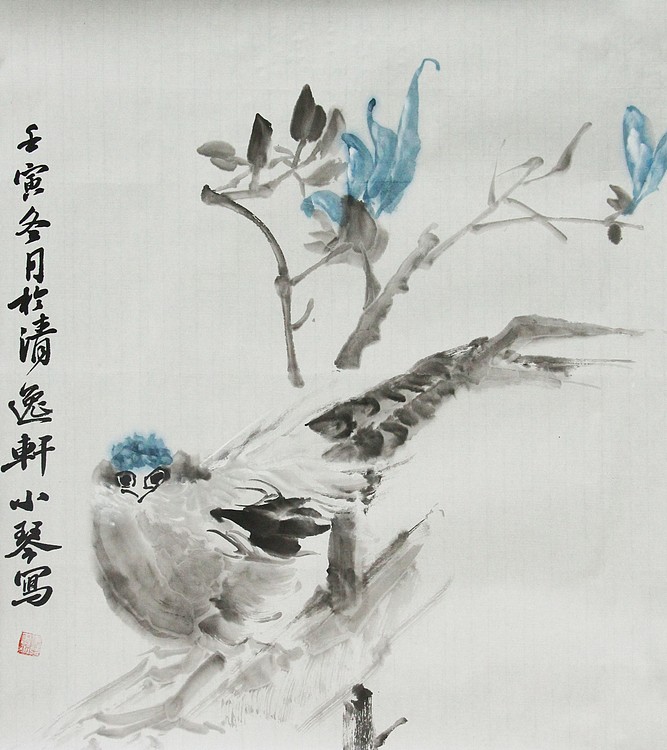 壬寅冬月於清逸軒小琴寫